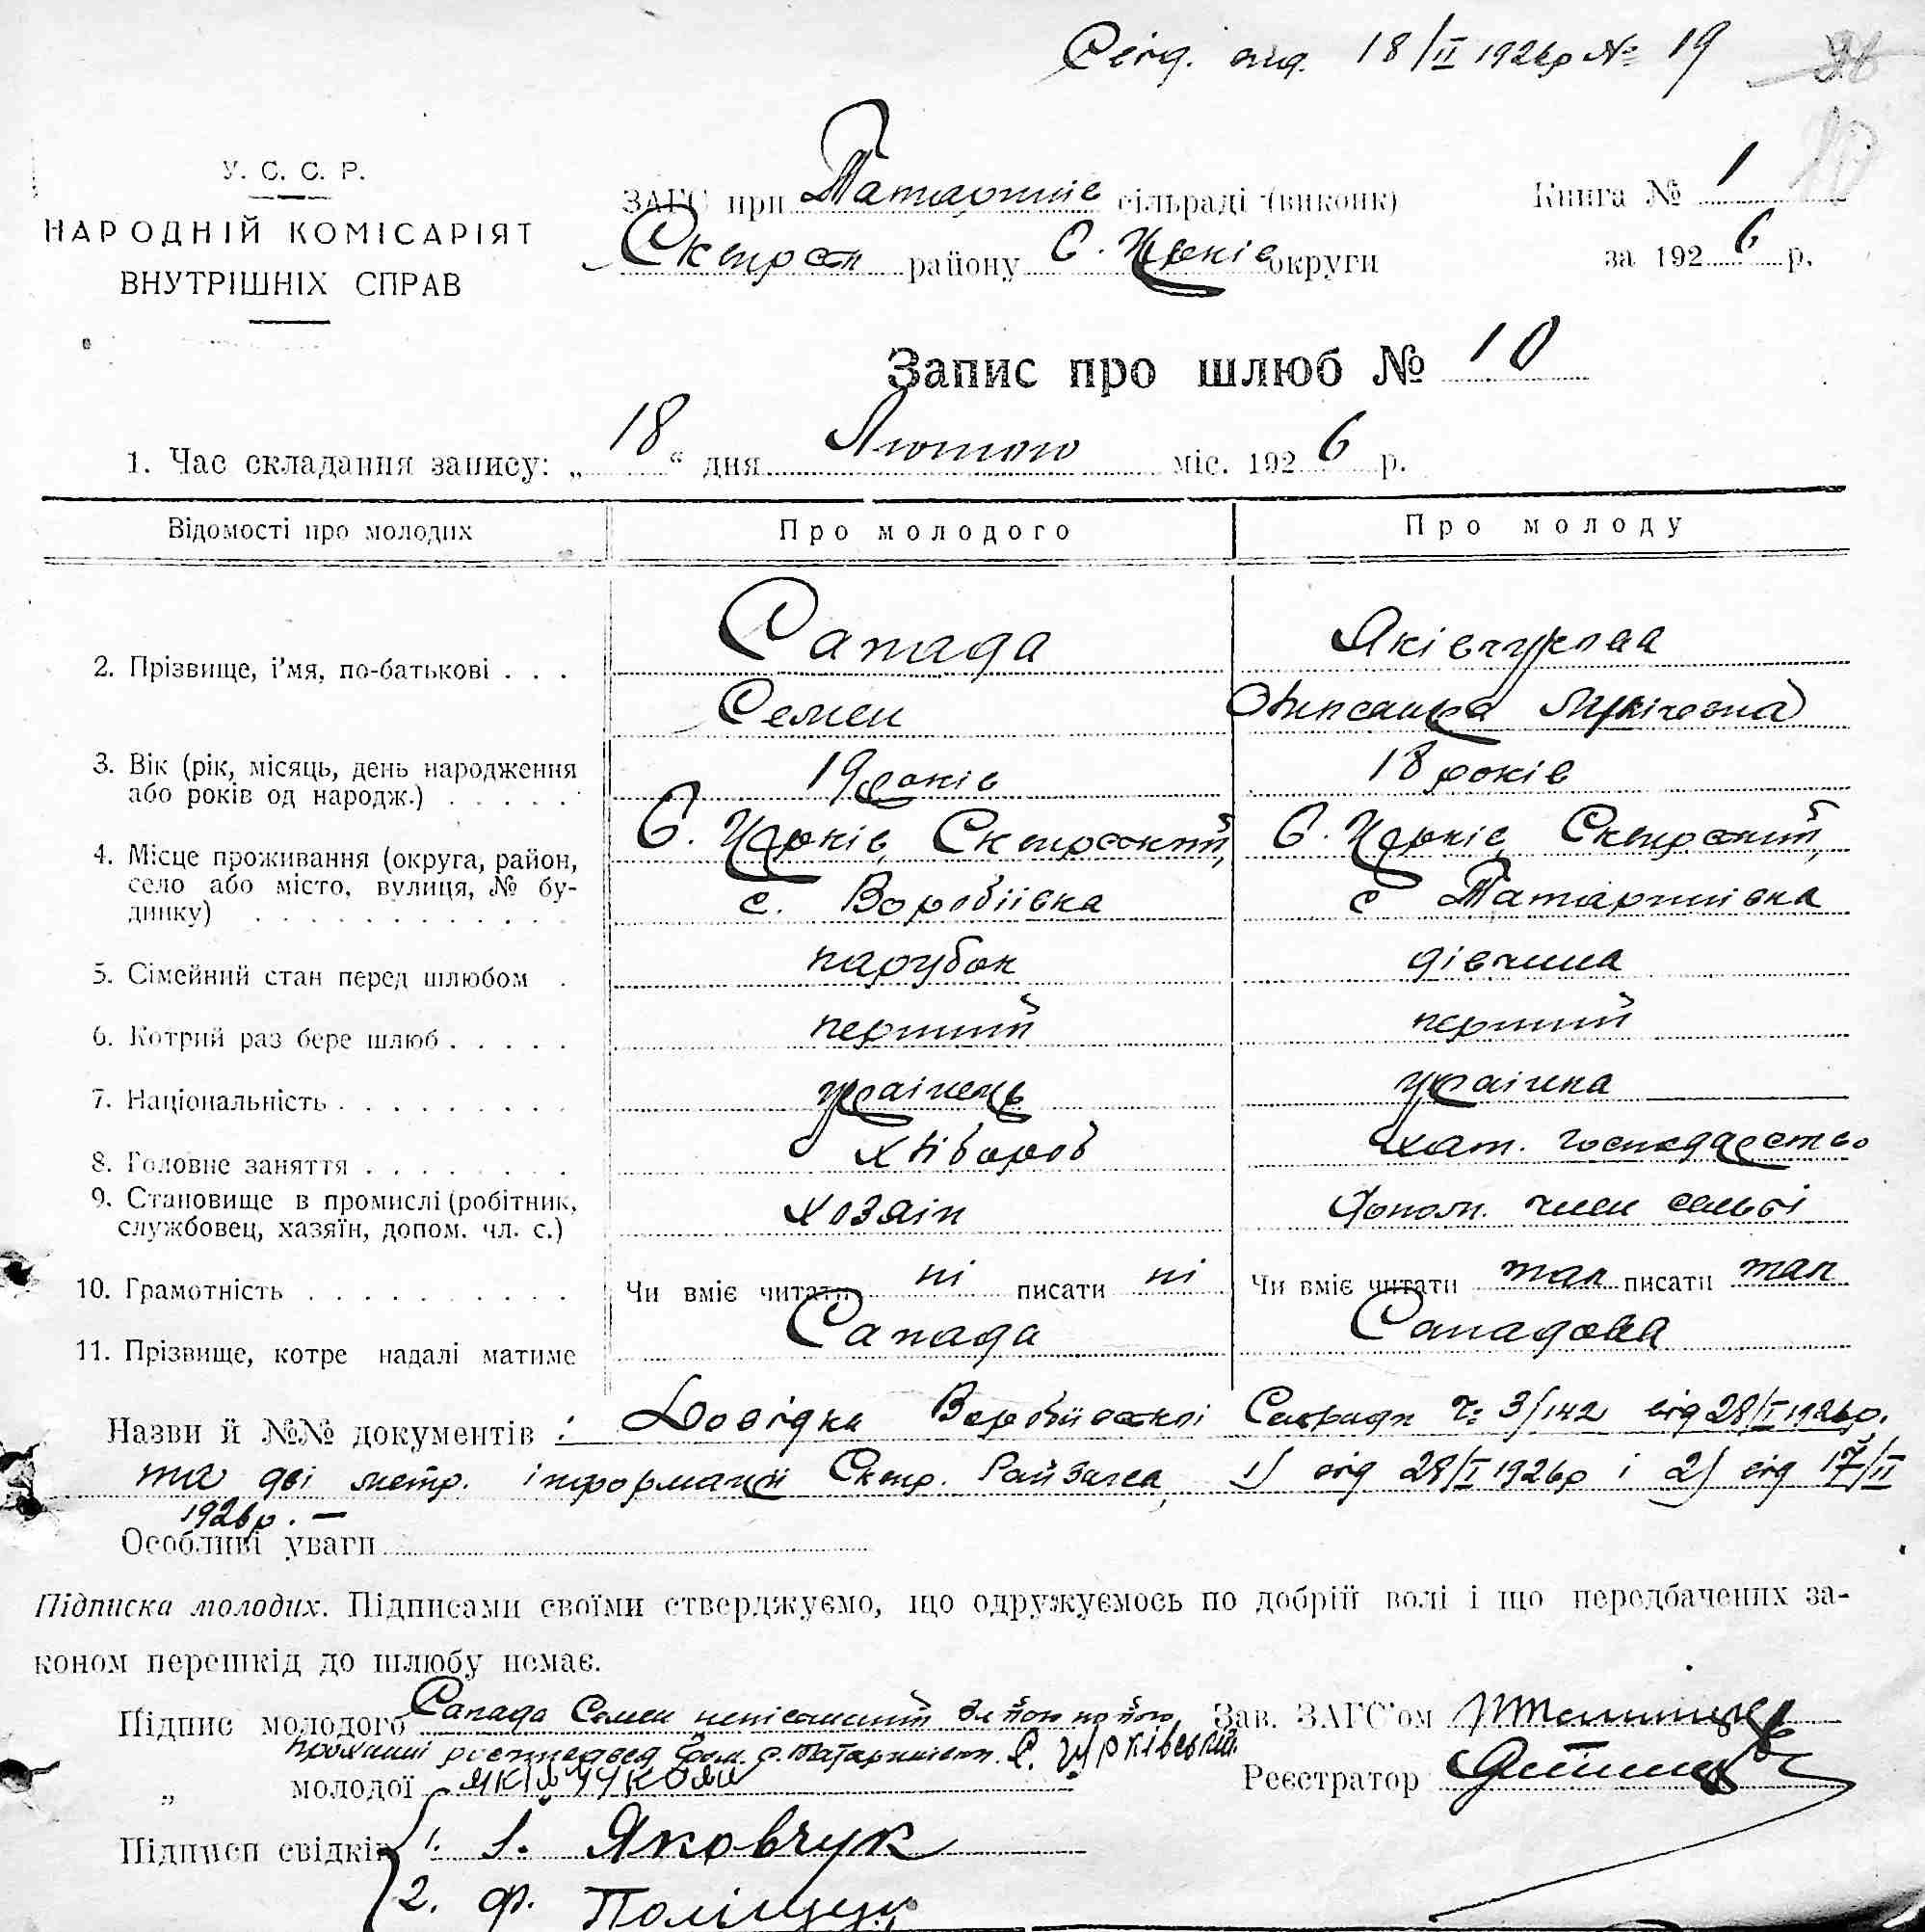 від. 18/II 1926р № 19
У. С. С. Р.
НАРОДНІЙ КОМІСАРІЯТ
ВНУТРІШНІХ СПРАВ
ЗАГС при Татаршів сільраді (виконк)
Сквирськ району Б. Церків округи
Книга № 1
за 1926 р.
Запис про шлюб № 10
1. Час складання запису: „18“ дня Лютого міс. 1926 р.
Відомості про молодих
Про молодого
Про молоду
2. Прізвище, і'мя, по-батькові . . .
Сапада
Семен
Яківчукова
Олександра
3. Вік (рік, місяць, день народження
або років од народж.) . . . . .
19 років
18 років
4. Місце проживання (округа, район,
село або місто, вулиця, № бу-
динку) . . . . . . . . . . . .
Б. Церків, Сквирський,
с. Воробіівка
Б. Церків, Сквирський,
с Татаршівка
5. Сімейний стан перед шлюбом .
парубок
дівчина
6. Котрий раз бере шлюб . . . . .
перший
перший
7. Національність . . . . . . . . .
українець
українка
8. Головне заняття . . . . . . . .
хлібороб
хат. господарство
9. Становище в промислі (робітник,
службовец, хазяїн, допом. чл. с.)
хозяін
Допом. член семьі
10. Грамотність . . . . . . . . . .
Чи вміє читати ні писати ні
Чи вміє читати так писати так
11. Прізвище, котре надалі матиме
Сапада
Сападова
Назви й №№ документів : Довідка Воробіівської Сільради ч: 3/142 від 28/I 1926р.
та дві метр. інформації Сквир. Райзагса, 1) від 28/I 1926р і 2) від 17/II
1926р. —
Особливі уваги
Підписка молодих. Підписами своїми стверджуємо, що одружуємось по добрій волі і що передбачених за-
коном перешкід до шлюбу немає.
Підпис молодого Сапада Семен неписьменний за його
Зав. ЗАГС'ом
„ молодої
Реєстратор
Підписи свідків
1. Яковчук
2. Ф. Поліщук